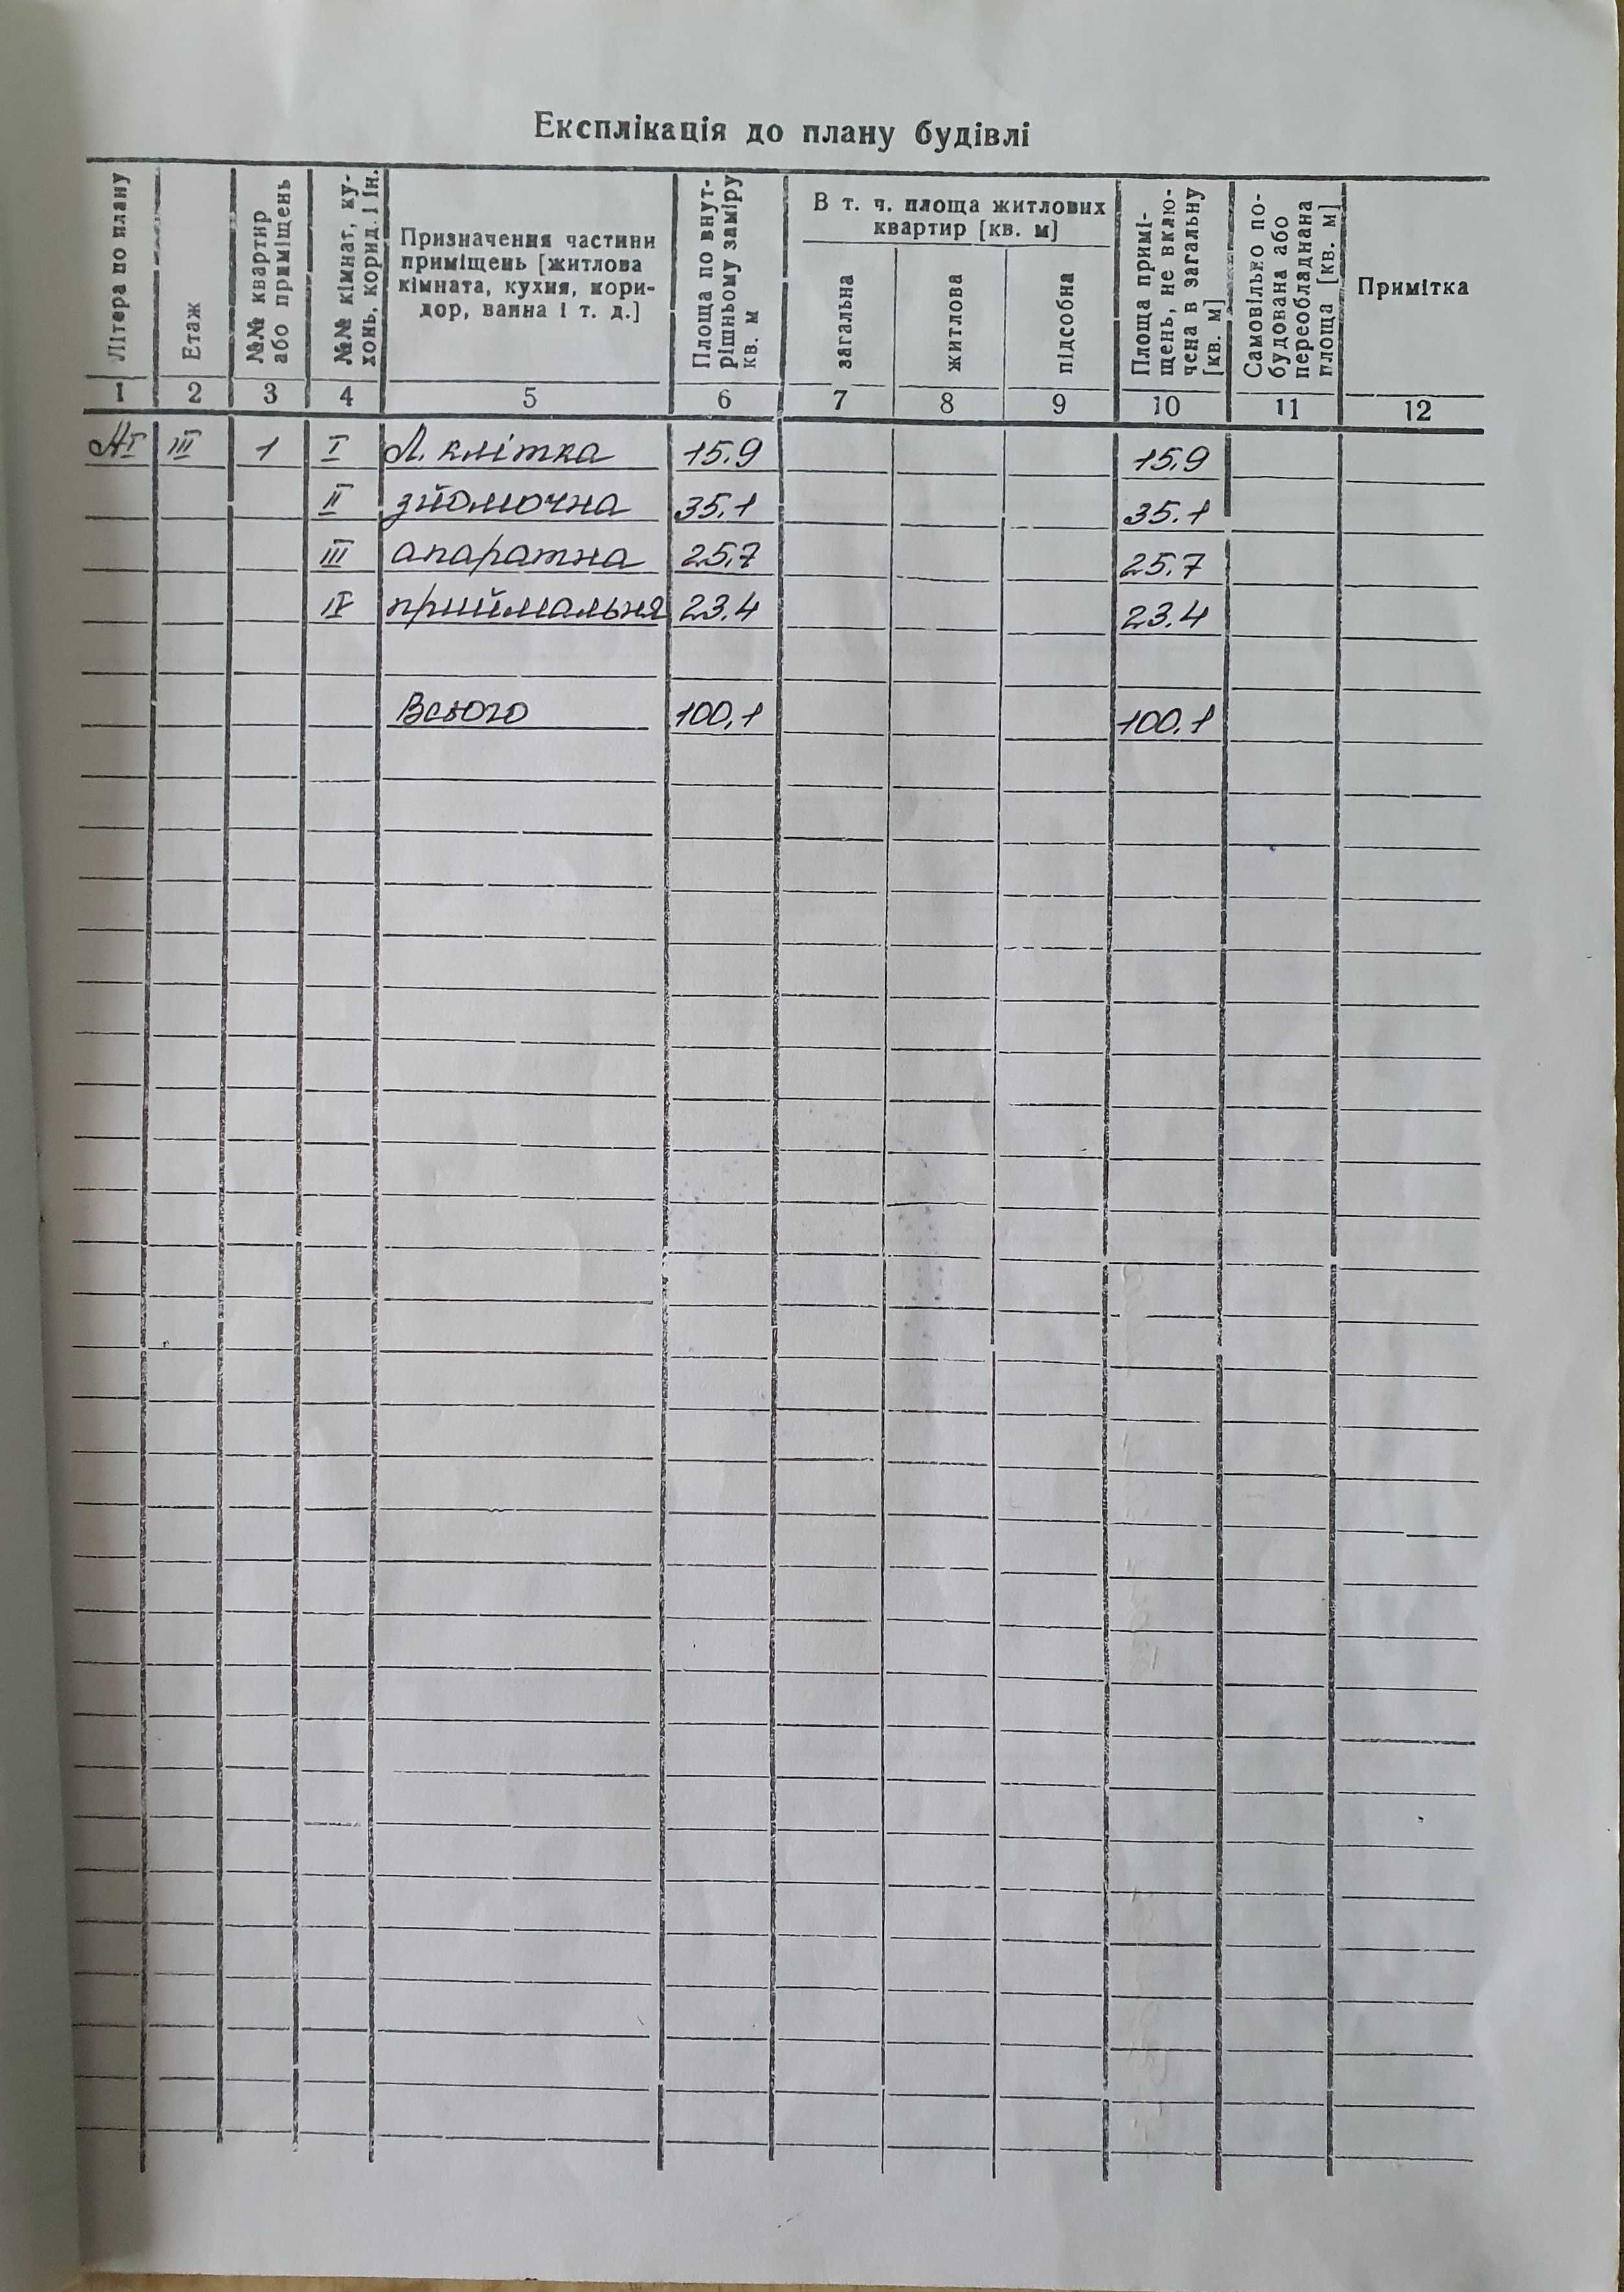 Експлікація до плану будівлі
Літера по плану
Етаж
№№ квартир
або приміщень
№№ кімнат, ку-
хонь, корид. і ін.
Призначення частини
приміщень [житлова
кімната, кухня, кори-
дор, ванна і т. д.]
Площа по внут-
рішньому заміру
кв. м
В т. ч. площа житлових
квартир [кв. м]
загальна
житлова
підсобна
Площа примі-
щень, не вклю-
чена в загальну
[кв. м]
Самовілько по-
будована або
переобладнана
площа [кв. м]
Примітка
1 2 3 4 5 6 7 8 9 10 11 12
АІ ІІІ 1 І Л. клітка 15.9 15.9
ІІ зйомочна 35.1 35.1
ІІІ апаратна 25.7 25.7
ІV приймальня 23.4 23.4
Всього 100,1 100.1